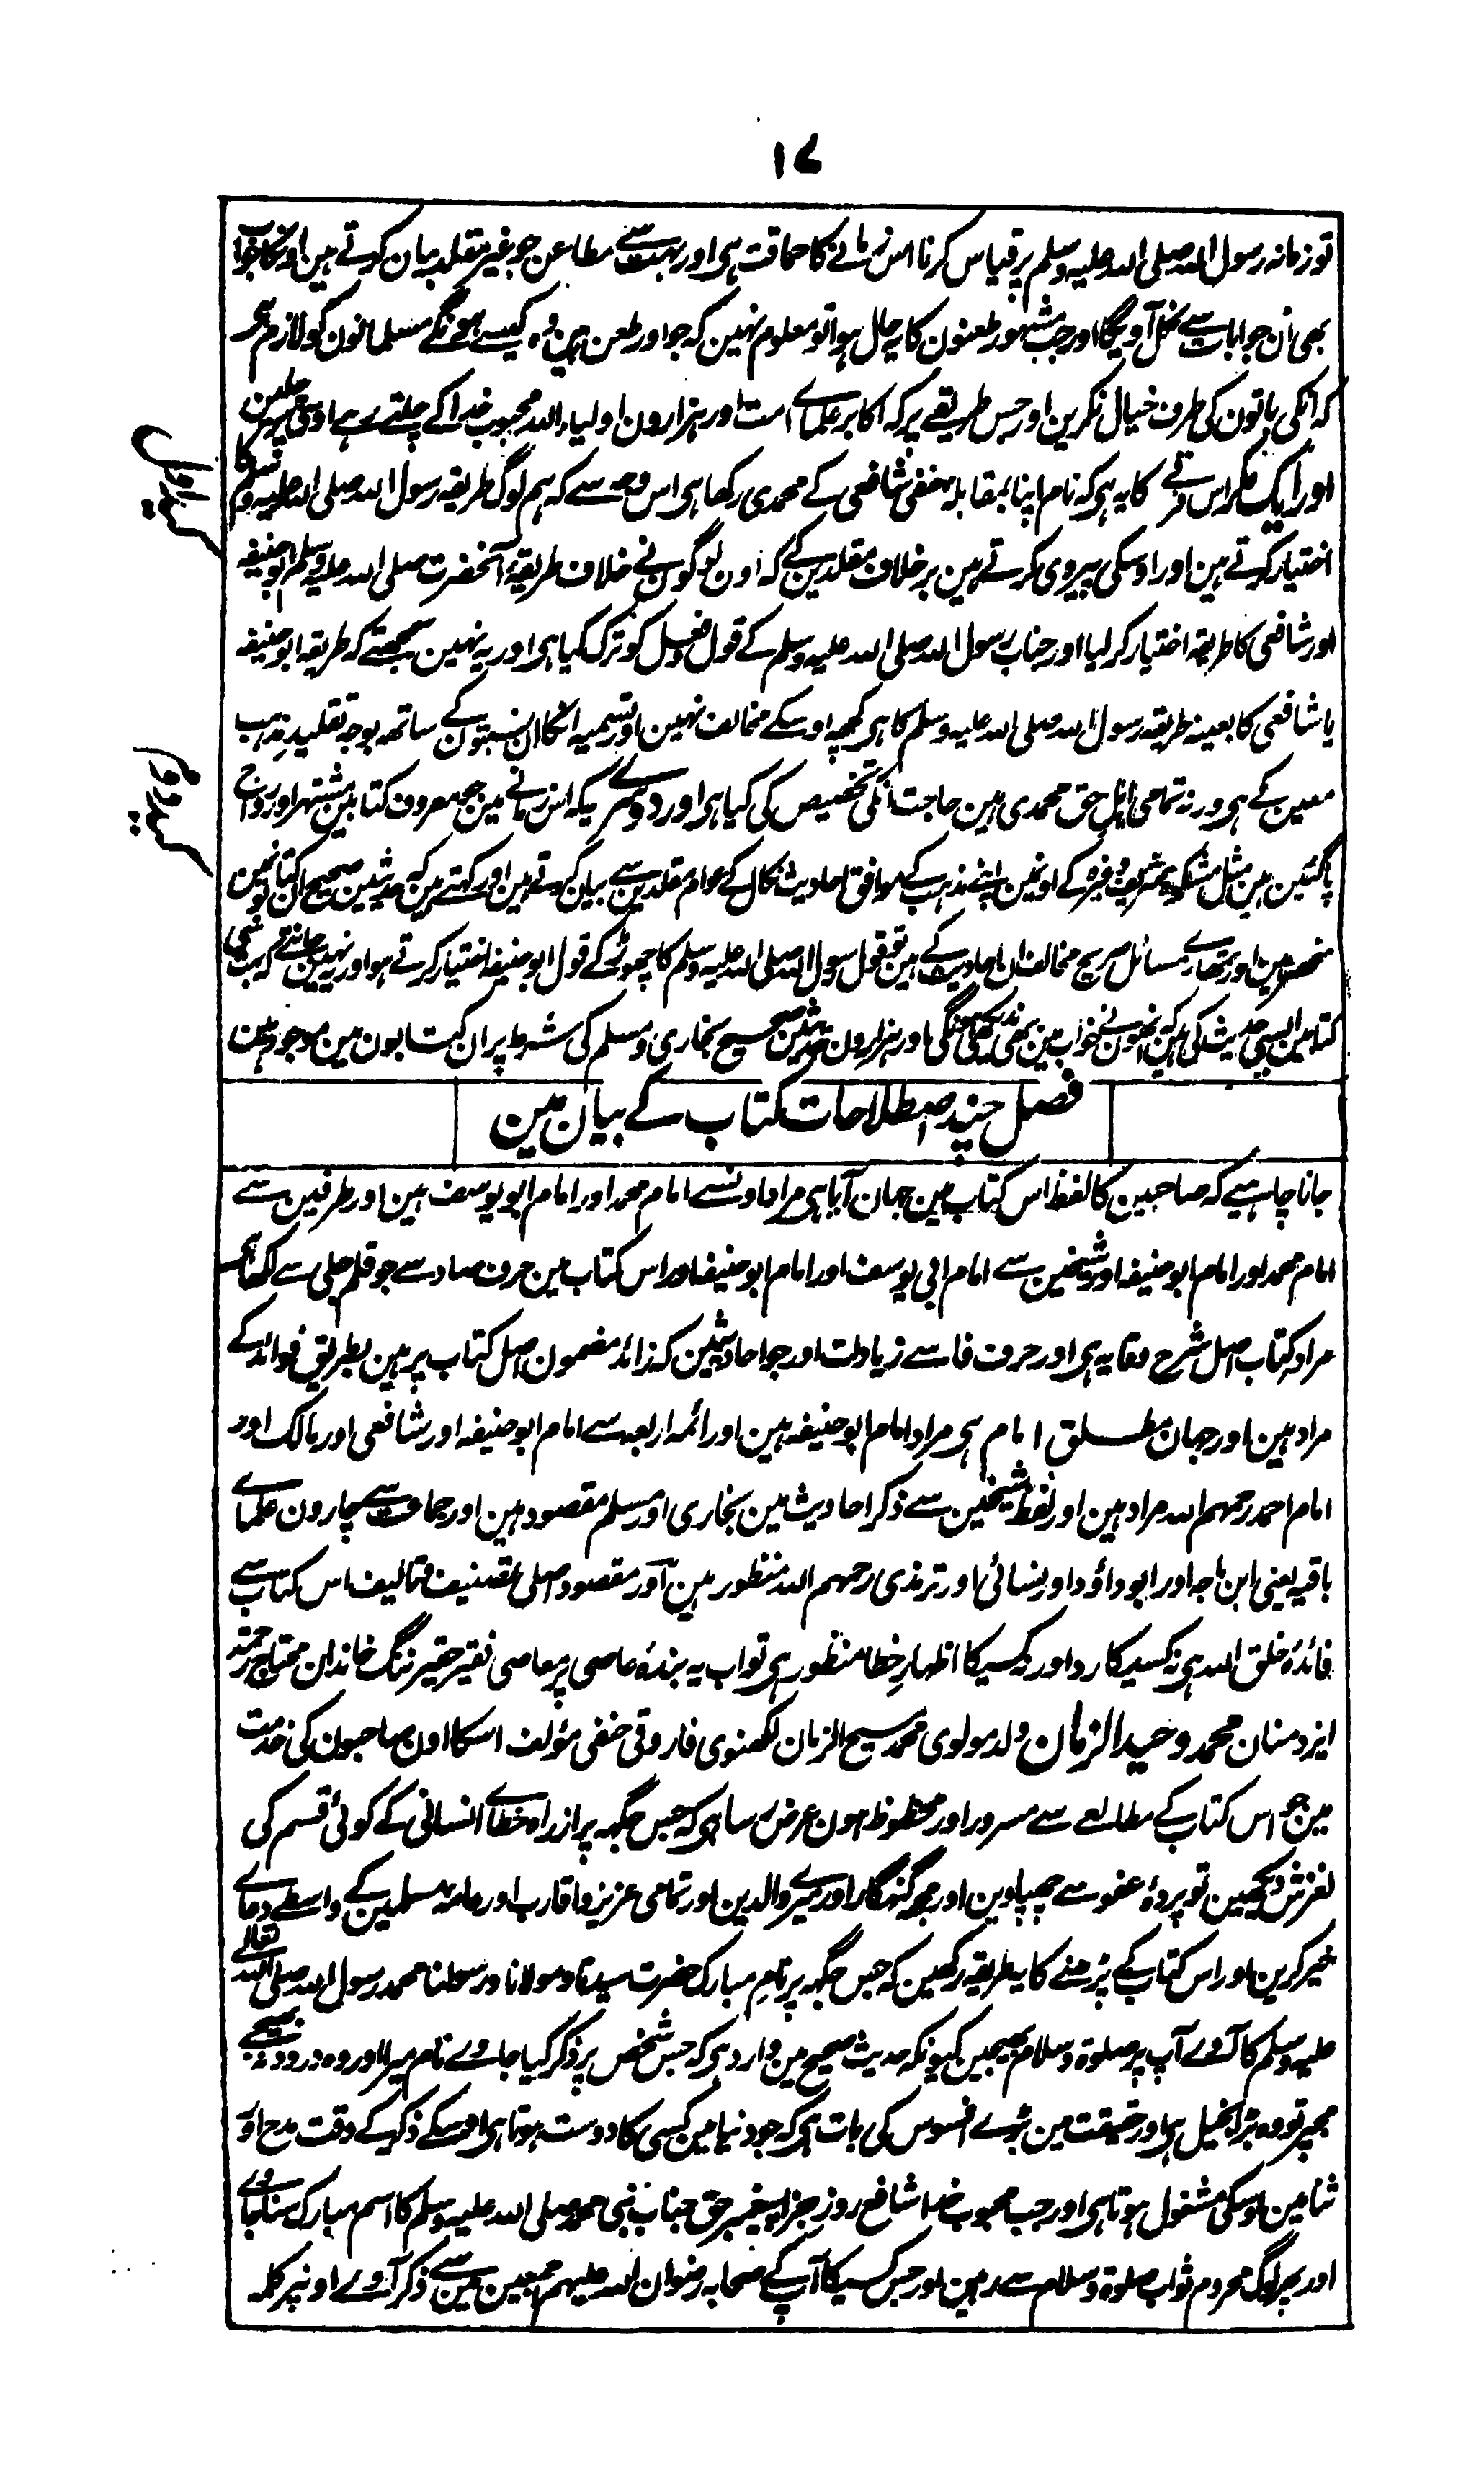 ۱۷
تو زمانہ رسول اللہ صلی اللہ علیہ وسلم پر قیاس کرنا اس زمانے کا حماقت ہی اور بہت سے مطاعن جو غیر مقلد بیان کرتے ہین اونکا جواب
بھی ان جوابات سے نکل آویگا اور جب مشہور طعنون کا یہ حال ہوا تو معلوم نہین کہ جو اور طعن ہین وہ کیسے ہونگے مسلمانون کو لازم ہی
کہ انکی باتون کی طرف خیال نکرین اور جس طریقے پر کہ اکابر علماے امت اور ہزارون اولیاء اللہ محبوب خدا کے چلتے رہے اوسی پر چلین
اور ایک مکر اس فرقے کا یہ ہی کہ نام اپنا بمقابلہ حنفی شافعی کے محمدی رکھا ہی اس وجہ سے کہ ہم لوگ طریقہ رسول اللہ صلی اللہ علیہ وسلم کا
اختیار کرتے ہین اور اوسکی پیروی کرتے ہین برخلاف مقلدین کے کہ اون لوگون نے خلاف طریقۂ آنحضرت صلی اللہ علیہ وسلم ابو حنیفہ
اور شافعی کا طریقہ اختیار کر لیا اور جناب رسول اللہ صلی اللہ علیہ وسلم کے قول و فعل کو ترک کیا ہی اور یہ نہین سمجھتے کہ طریقہ ابو حنیفہ
یا شافعی کا بعینہ طریقہ رسول اللہ صلی اللہ علیہ وسلم کا ہی کچھ اوسکے مخالف نہین اور تسمیہ انکا ان نسبتون کے ساتھ بوجہ تقلید مذہب
معین کے ہی ورنہ تمامی اہل حق محمدی ہین حاجت انکی تخصیص کی کیا ہی اور دوسرے یہ کہ اس زمانے مین جو معروف کتابین مشتہر اور رواج
پا گئین ہین مثل مشکوۃ شریف وغیرہ کے اونمین اپنے مذہب کے موافق احادیث نکال کے عوام مقلدین سے بیان کرتے ہین اور کہتے ہین کہ حدیثین صحیح ان کتابون مین
منحصر ہین اور تمھارے مسائل صریح مخالف ان احادیث کے ہین تو قول رسول اللہ صلی اللہ علیہ وسلم کا چھوڑ کے قول ابو حنیفہ اختیار کرتے ہو اور نہین جانتے کہ بہت سی
کتابین ایسی حدیث کی ہین کہ انھون نے خواب مین بھی نہ دیکھی ہونگی اور ہزارون حدیثین صحیح بخاری و مسلم کی شرط پر ان کتابون مین موجود ہین
فصل چند اصطلاحات کتاب کے بیان مین
جانا چاہیے کہ صاحبین کا لفظ اس کتاب مین جہان آیا ہی مراد اونسے امام محمد اور امام ابو یوسف ہین اور طرفین سے
امام محمد اور امام ابو حنیفہ اور شیخین سے امام ابی یوسف اور امام ابو حنیفہ اور اس کتاب مین حرف صاد سے جو قلم جلی سے لکھا ہی
مراد کتاب اصل شرح وقایہ ہی اور حرف فا سے زیادات اور جو احادیثین کہ زائد مضمون اصل کتاب پر ہین بطریق فوائد کے
مراد ہین اور جہان مطلق امام ہی مراد امام ابو حنیفہ ہین اور ائمہ اربعہ سے امام ابو حنیفہ اور شافعی اور مالک اور
امام احمد رحمہم اللہ مراد ہین اور لفظ شیخین سے ذکر احادیث مین بخاری اور مسلم مقصود ہین اور جماعت سے چارون علماے
باقیہ یعنی ابن ماجہ اور ابو داؤد اور نسائی اور ترمذی رحمہم اللہ منظور ہین اور مقصود اصلی تصنیف و تالیف اس کتاب سے
فائدۂ خلق اللہ ہی نہ کسیکا رد اور نہ کسیکا اظہارِ خطا منظور ہی تو اب یہ بندۂ عاصی پر معاصی فقیر حقیر ننگ خاندان محتاج رحمت
ایزد منان محمد وحید الزمان ولد مولوی محمد مسیح الزمان لکھنوی فاروقی حنفی مؤلف اسکا اون صاحبون کی خدمت
مین جو اس کتاب کے مطالعے سے مسرور اور محظوظ ہون عرض رسا ہی کہ جس جگہہ پر از راہ خطاے انسانی کے کوئی قسم کی
لغزش دیکھین تو پردۂ عفو سے چھپاوین اور مجھ گنہگار اور میرے والدین اور تمامی عزیز و اقارب اور عامۂ مسلمین کے واسطے دعاے
خیر کرین اور اس کتاب کے پڑھنے کا یہ طریقہ رکھین کہ جس جگہہ پر نامِ مبارک حضرت سیدنا و مولانا و رسولنا محمد رسول اللہ صلی اللہ تعالی
علیہ وسلم کا آوے آپ پر صلوۃ و سلام بھیجین کیونکہ حدیث صحیح مین وارد ہی کہ جس شخص پر ذکر کیا جاوے نام میرا اور وہ درود نہ بھیجے
مجھپر تو وہ بڑا بخیل ہی اور حقیقت مین بڑے افسوس کی بات ہی کہ جو دنیا مین کسی کا دوست ہوتا ہی اوسکے ذکر کے وقت مدح اور
ثنا مین اوسکی مشغول ہوتا ہی اور جب محبوب خدا شافع روز جزا پیغمبر حق جناب نبی محمد صلی اللہ علیہ وسلم کا اسم مبارک سنا جاوے
اور پھر لوگ محروم ثواب صلوۃ و سلام سے رہین اور جس کسیکا آپ کے صحابہ رضوان اللہ علیہم اجمعین مین سے ذکر آوے اونپر کلمہ